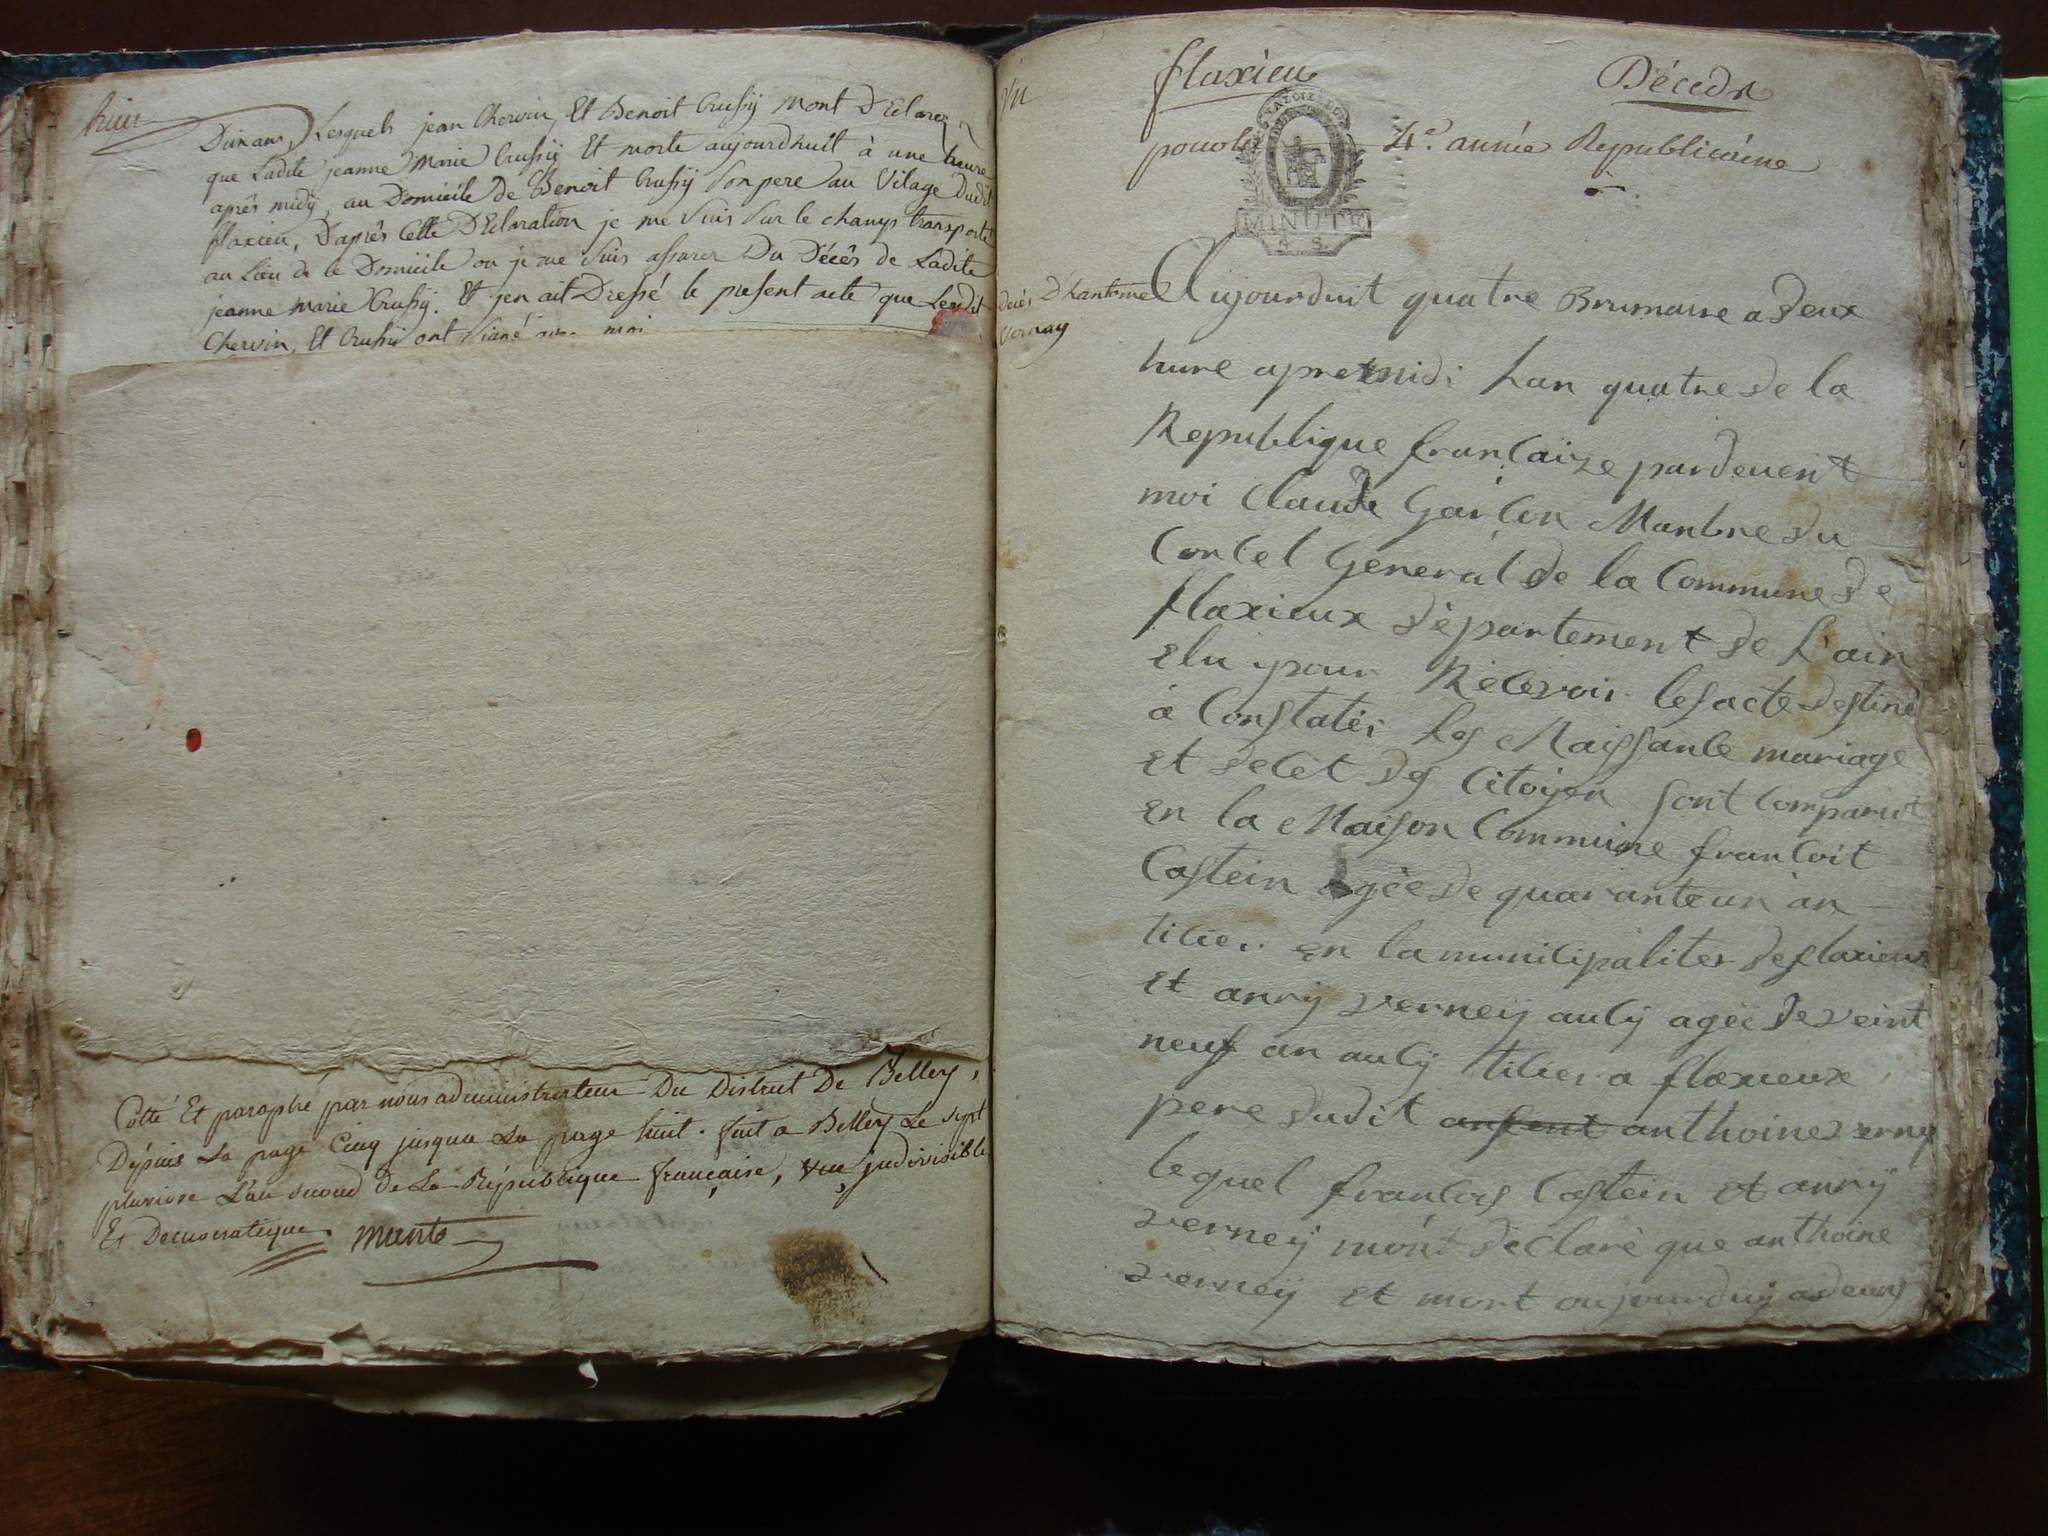 huit
Dun an, Lesquels jean Chervin, Et Benoit Crussÿ mont D'Eclarez
que Ladite jeanne Marie Crussÿ Et morte aujourdhuit à une heure
après midÿ, au Domicile de Benoit Crussÿ Son pere au Vilage Dudit
flaxieu, D'après Cette DEclaration je me Suis Sur le champs transporté
au Lieu de le Domicile ou je me Suis assurer Du Décès de Ladite
jeanne marie Crussÿ. Et jen ait Dressé le present acte que Lesdit
Chervin, Et Crussÿ ont Signé avec moi
Cotté Et paraphé par nous administrateur Du District De Belley,
Depuis La page Cinq jusqua La page huit. fait a Belley Le sept
pluviose L'an second de La République française, une, indivisible
Et Democratique.
flaxieu Déceds
pour la 4e. année Republicaine
MINUTE
4 S.
décès D'hantoine
Vernay
Aujourduit quatre Brumaire a deux
hure apres midi lan quatre de la
Republique francaize pardevent
moi Claude Garcon Manbre du
Concel General de la Commune de
flaxieux département de L'ain
elu pour Récevoir les acte destiné
a Constater les Naissance mariage
et decet des Citoyen sont Comparut
en la Maison Commune francoit
Castein agée de quaranteun an
ticier en la municipaliter de flaxieux
et anrÿ verneÿ aucÿ agée de veint
neuf an aucÿ ticier a flaxieux
pere dudit anfent anthoine verney
lequel francois Castein et anrÿ
verneÿ mont déclaré que anthoine
verneÿ et mort aujourduÿ a deux